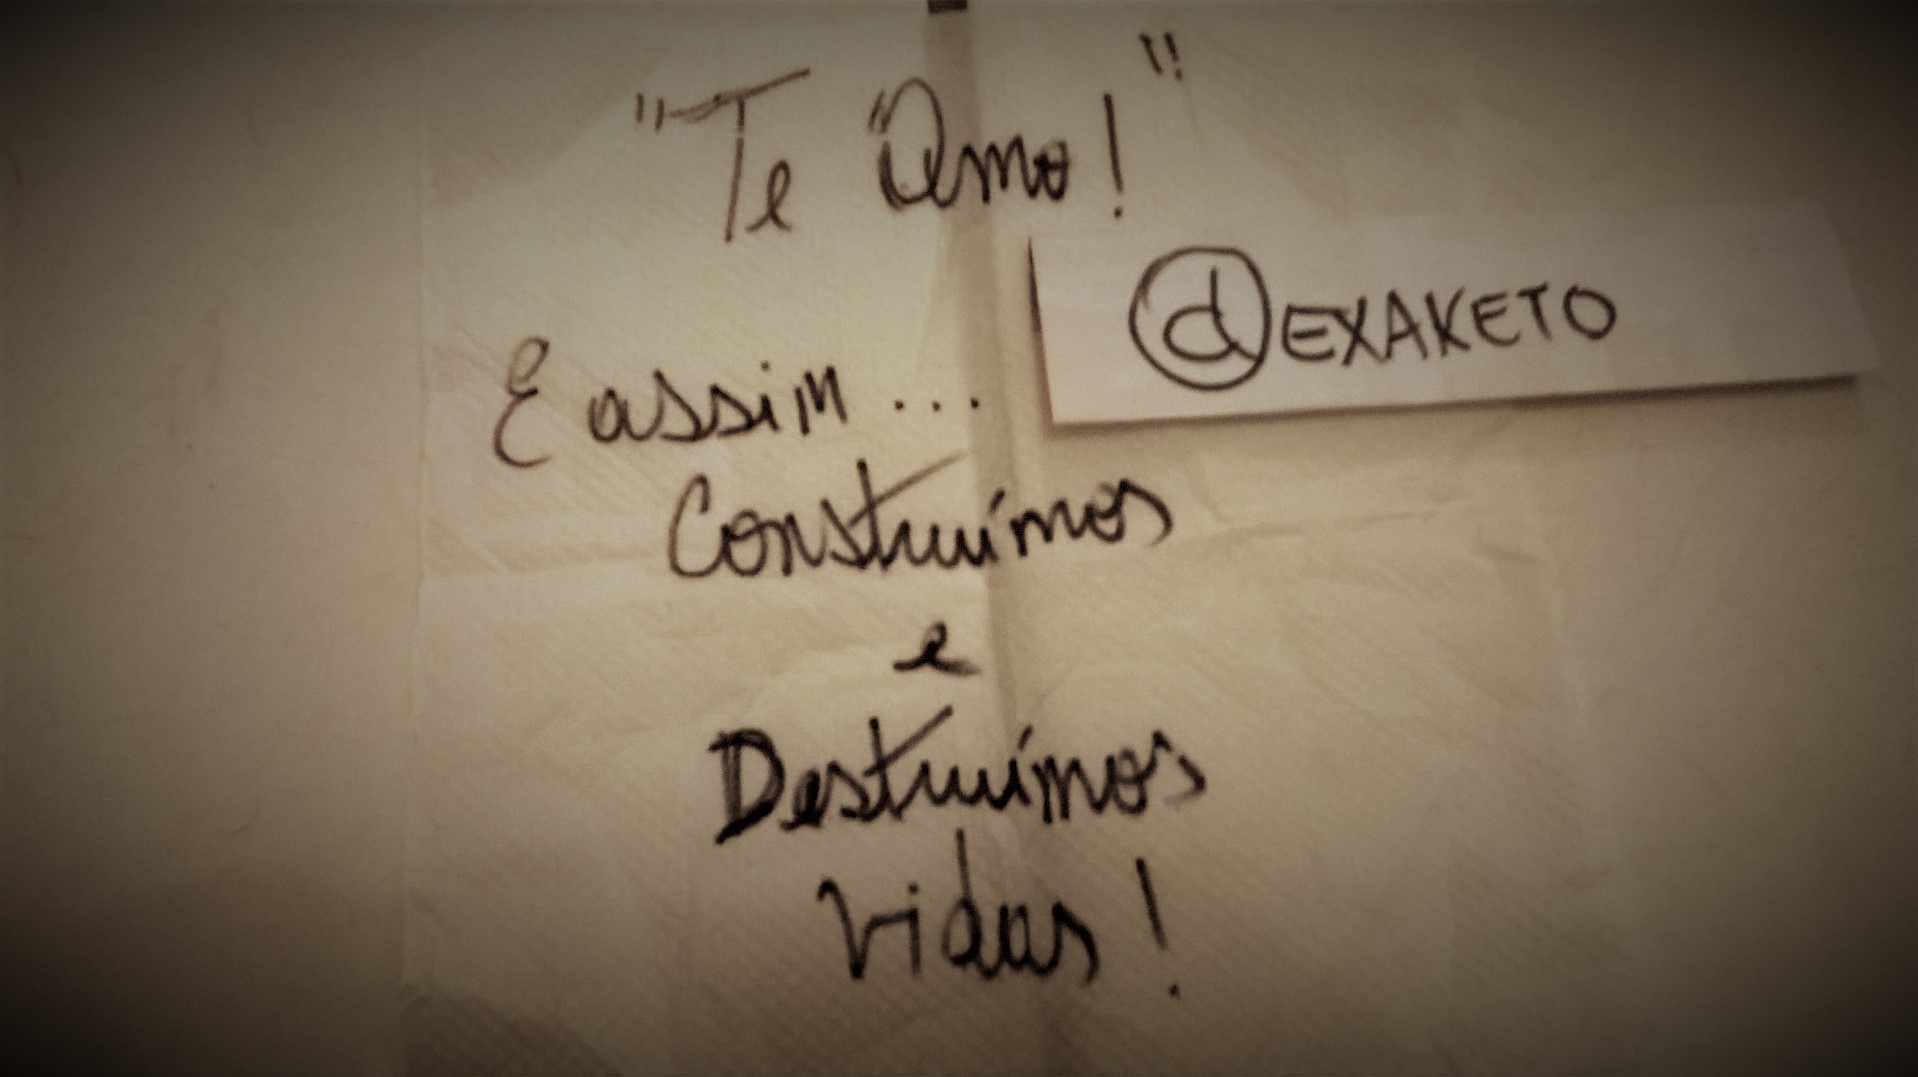 "Te Amo!"
ⓓEXAKETO
E assim...
Construímos
e
Destruímos
Vidas!